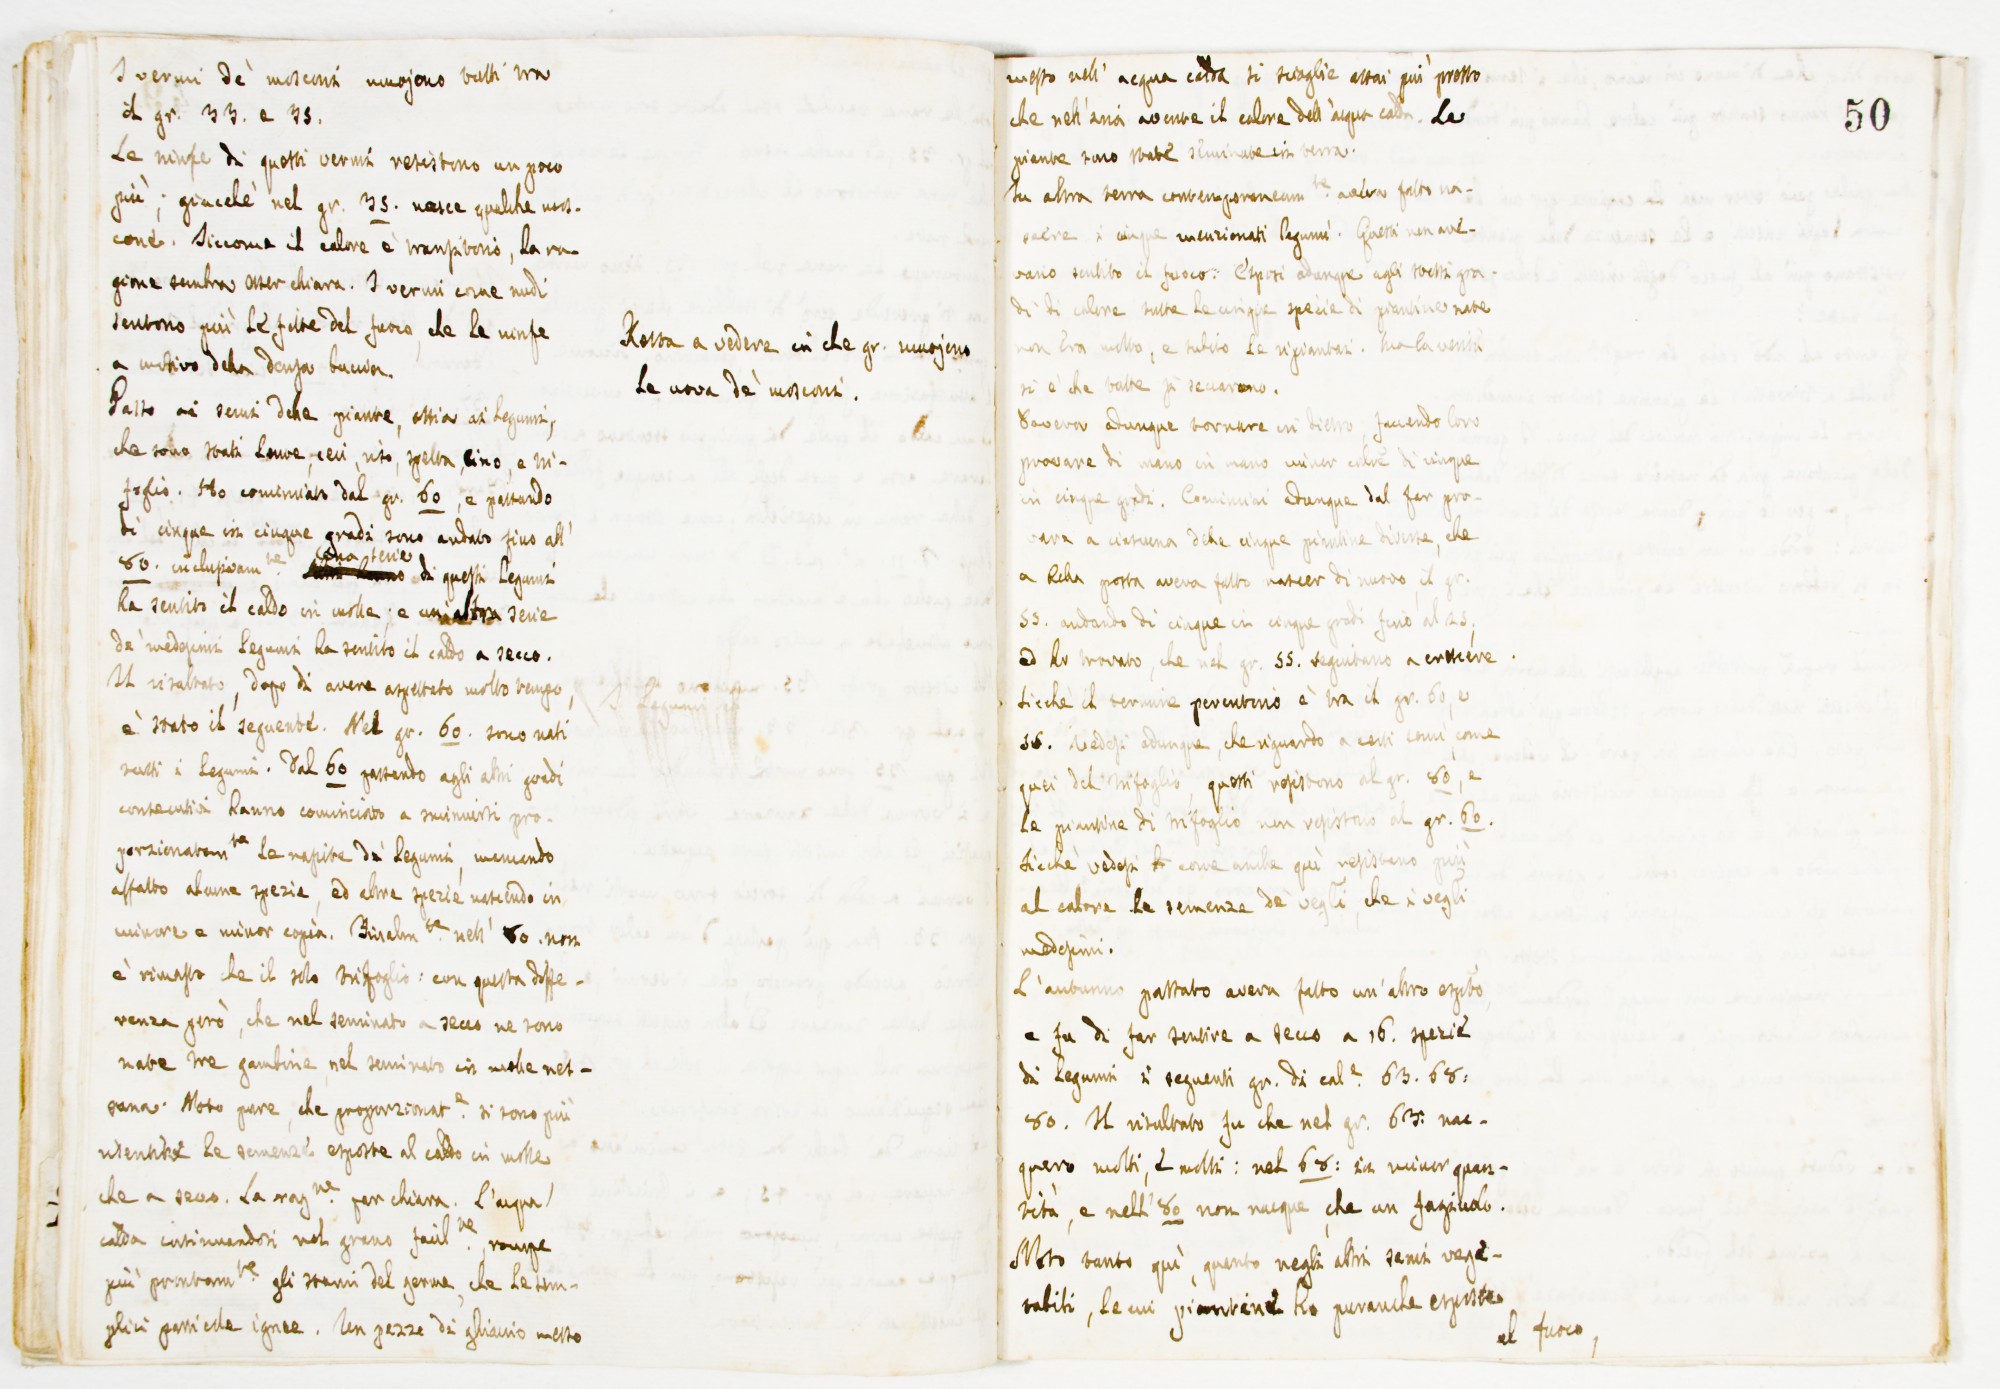 I vermi de' mosconi muojono tutti tra
il gr. 33. e 35.
Le ninfe di questi vermi resistono un poco
più; giacchè nel gr. 35. nasce qualche mos-
cone. Siccome il calore è transitorio, la ra-
gione sembra esser chiara. I vermi come nudi
sentono più le ferite del fuoco, che le ninfe
a motivo della densa buccia.
Passo ai semi delle piante, ossia ai legumi,
che sono stati leuve, ceci, riso, spelta, lino, e tri-
foglio. Ho cominciato dal gr. 60, e passando
di cinque in cinque gradi sono andato fino all'
80. inclusivamte. una serie di questi legumi
ha sentito il caldo in molle; e un'altra serie
de' medesimi legumi ha sentito il caldo a secco.
Il risultato, dopo di avere aspettato molto tempo,
è stato il seguente. Nel gr. 60. sono nati
tutti i legumi. Dal 60 passando agli altri gradi
consecutivi hanno cominciato a sminuirsi pro-
porzionatamte le nascite de' legumi, mancando
affatto alcune spezie, ed altre spezie nascendo in
minore e minor copia. Finalmte. nell' 80. non
è rimasto che il solo trifoglio: con questa diffe-
renza però, che nel seminato a secco ne sono
nate tre gambine, nel seminato in molle nes-
suna. Noto pure, che proporzionate. si sono più
risentite le semenze esposte al caldo in molle
che a secco. La ragne. par chiara. L'acqua
calda insinuandosi nel grano facilte., rompe
più prontamte. gli stami del germe, che le sem-
plici particelle ignee. Un pezzo di ghiaccio messo
Resta a vedere in che gr. muojono
le uova de' mosconi.
50
messo nell' acqua calda si scioglie assai più presto
che nell'aria avente il calore dell'acqua calda. Le
piante sono state seminate in terra.
In altra terra contemporaneamte. aveva fatto na-
scere i cinque menzionati legumi. Questi non ave-
vano sentito il fuoco. Esposi adunque agli stessi gra-
di di calore tutte le cinque spezie di piantine nate
non era molto, e subito le ripiantai. Ma la verità
si è che tutte si seccarono.
Doveva adunque tornare in dietro, facendo loro
provare di mano in mano minor calore di cinque
in cinque gradi. Cominciai adunque dal far pro-
vare a ciascuna delle cinque piantine diverse, che
a bella posta aveva fatto nascer di nuovo, il gr.
55. andando di cinque in cinque gradi fino al 25,
ed ho trovato, che nel gr. 55. seguitano a crescere.
Sicchè il termine perentorio è tra il gr. 60, e
56. Vedesi adunque, che riguardo a certi semi, come
quei del trifoglio, questi resistono al gr. 80, e
le piantine di trifoglio non resistono al gr. 60.
Sicchè vedesi come anche quì resistono più
al calore le semenze de' vegli, che i vegli
medesimi.
L'autunno passato aveva fatto un'altro esptto,
e fu di far sentire a secco a 16. spezie
di legumi i seguenti gr. di cale. 63. 68:
80. Il risultato fu che nel gr. 63: nac-
quero molti, e molti: nel 68: in minor quan-
tità, e nell' 80 non nacque che un fagiuolo.
Noto tanto quì, quanto negli altri semi vege-
tabili, le cui piantine ho puranche esposte
al fuoco,